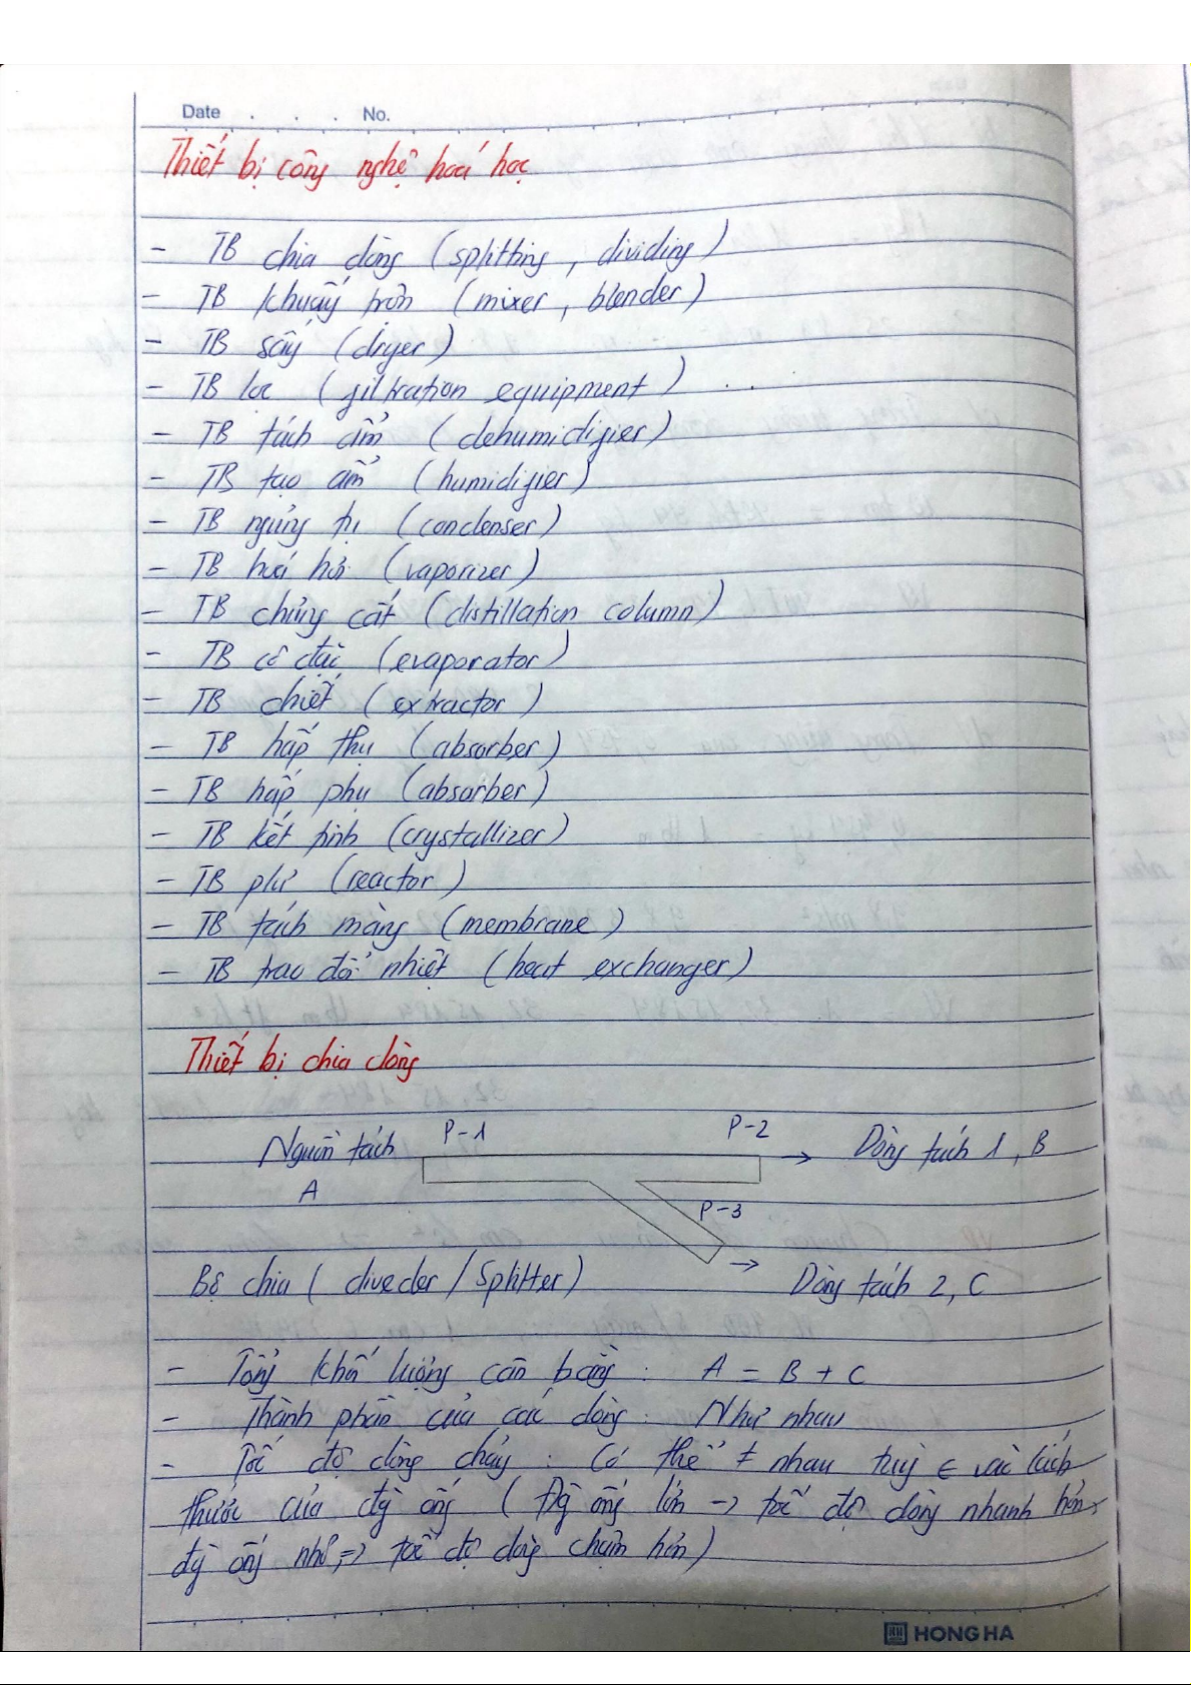 Date . . . No.
Thiết bị công nghệ hoá học
- TB chia dòng (splitting, dividing)
- TB khuấy trộn (mixer, blender)
- TB sấy (dryer)
- TB lọc (filtration equipment) ..
- TB tách ẩm (dehumidifier)
- TB tạo ẩm (humidifier)
- TB ngưng tụ (condenser)
- TB hoá hơi (vaporizer)
- TB chưng cất (distillation column)
- TB cô đặc (evaporator)
- TB chiết (extractor)
- TB hấp thụ (absorber)
- TB hấp phụ (absorber)
- TB kết tinh (crystallizer)
- TB pứ (reactor)
- TB tách màng (membrane)
- TB trao đổi nhiệt (heat exchanger)
Thiết bị chia dòng
P-1 P-2
Nguồn tách → Dòng tách 1, B
A
P-3
Bộ chia (diveder/Splitter) → Dòng tách 2, C
- Tổng khối lượng cân bằng : A = B + C
- Thành phần của các dòng : Như nhau
- Tốc độ dòng chảy : Có thể ≠ nhau tuỳ ∈ vào kích
thước của đg ống (Đg ống lớn → tốc độ dòng nhanh hơn,
đg ống nhỏ → tốc độ dòng chậm hơn)
HONG HA